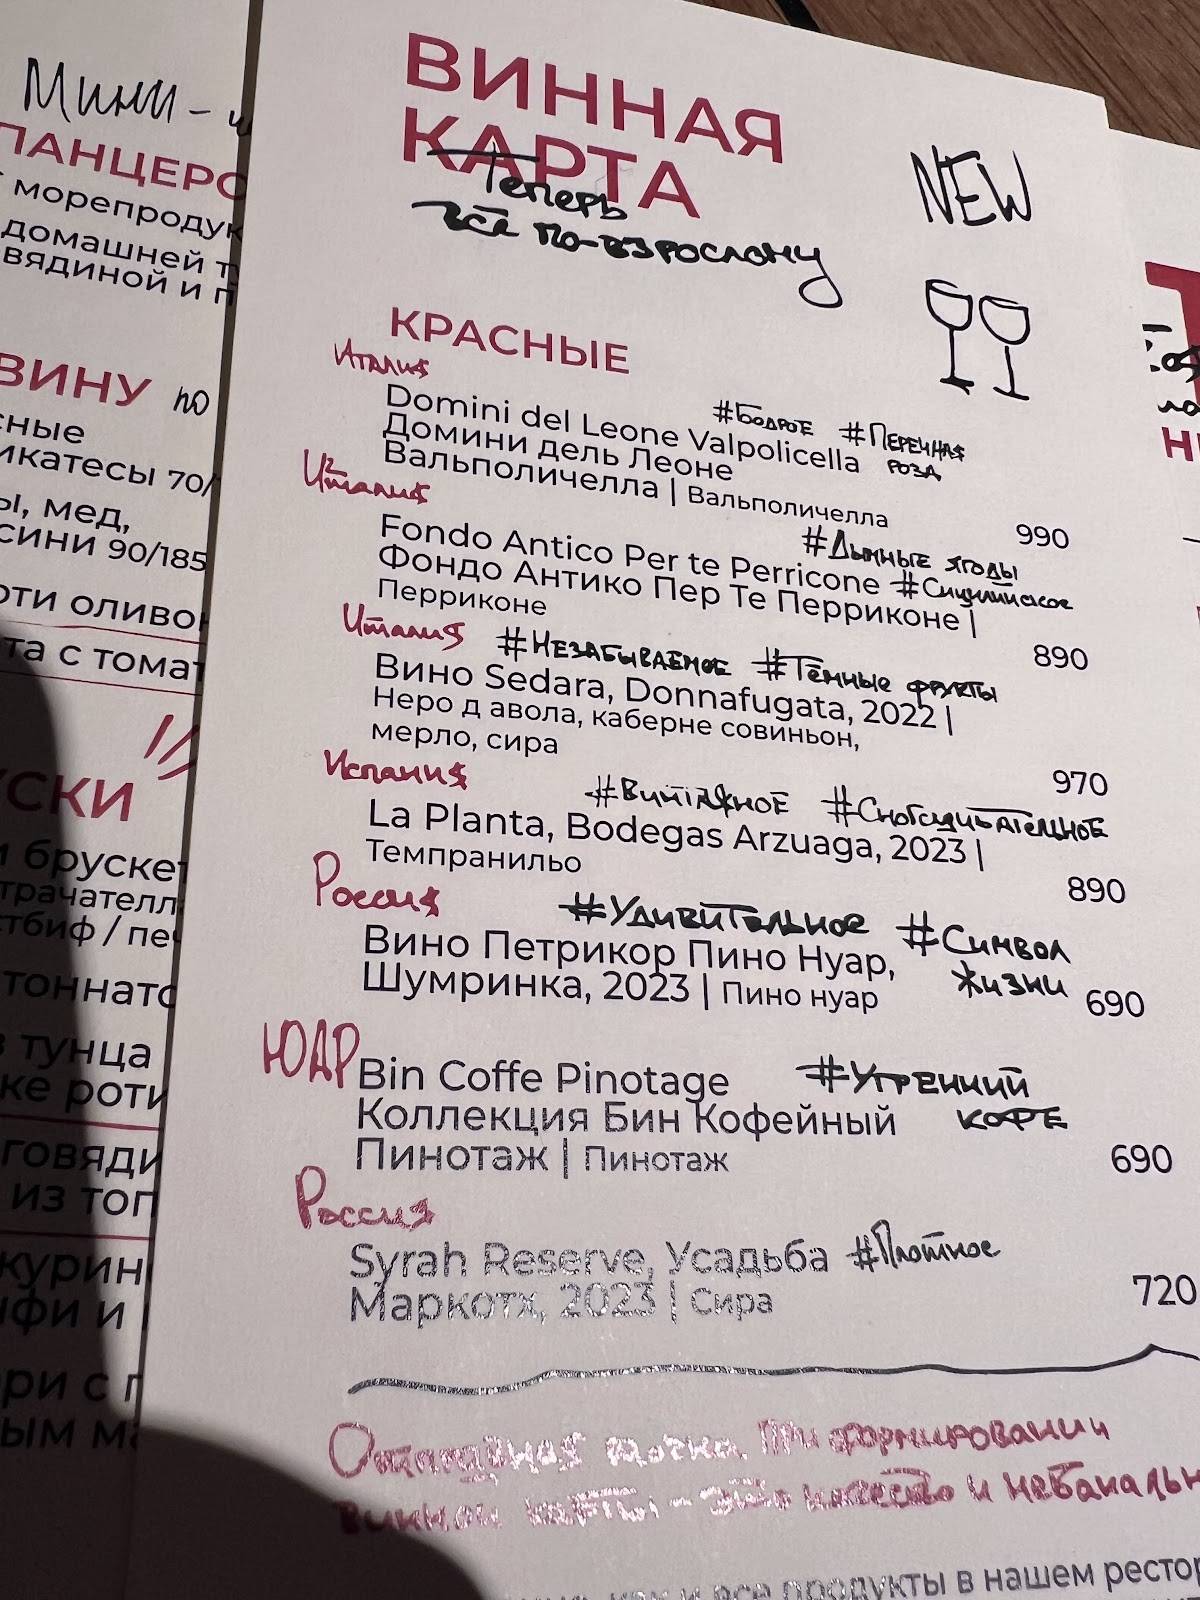 Мини-
ПАНЦЕРО
морепродук
домашней т
вядиной и п
ВИНУ по
сные
икатесы 70/
ы, мед,
сини 90/185
оти оливок
та с томат
СКИ
и брускет
трачателла
стбиф / печ
тоннато
з тунца
ке роти
говяди
из топ
курин
нфи и
ри с п
ым ма
ВИННАЯ
КАРТА
Теперь
всё по-взрослому
NEW
КРАСНЫЕ
Италия
Domini del Leone Valpolicella #Бодрое #Перечная
Домини дель Леоне роза
Вальполичелла | Вальполичелла 990
Италия
#Дымные ягоды
Fondo Antico Per te Perricone #Сицилийское
Фондо Антико Пер Те Перриконе |
Перриконе 890
Италия #Незабываемое #Тёмные фрукты
Вино Sedara, Donnafugata, 2022 |
Неро д авола, каберне совиньон,
мерло, сира 970
Испания #Винтажное #Сногсшибательное
La Planta, Bodegas Arzuaga, 2023 |
Темпранильо 890
Россия #Удивительное #Символ
жизни
Вино Петрикор Пино Нуар,
Шумринка, 2023 | Пино нуар 690
ЮАР
Bin Coffe Pinotage #Утренний
Коллекция Бин Кофейный кофе
Пинотаж | Пинотаж 690
Россия
Syrah Reserve, Усадьба #Плотное
Маркотх, 2023 | Сира 720
Отправная точка при формировании
винной карты - это качество и небанальн
как и все продукты в нашем рестор